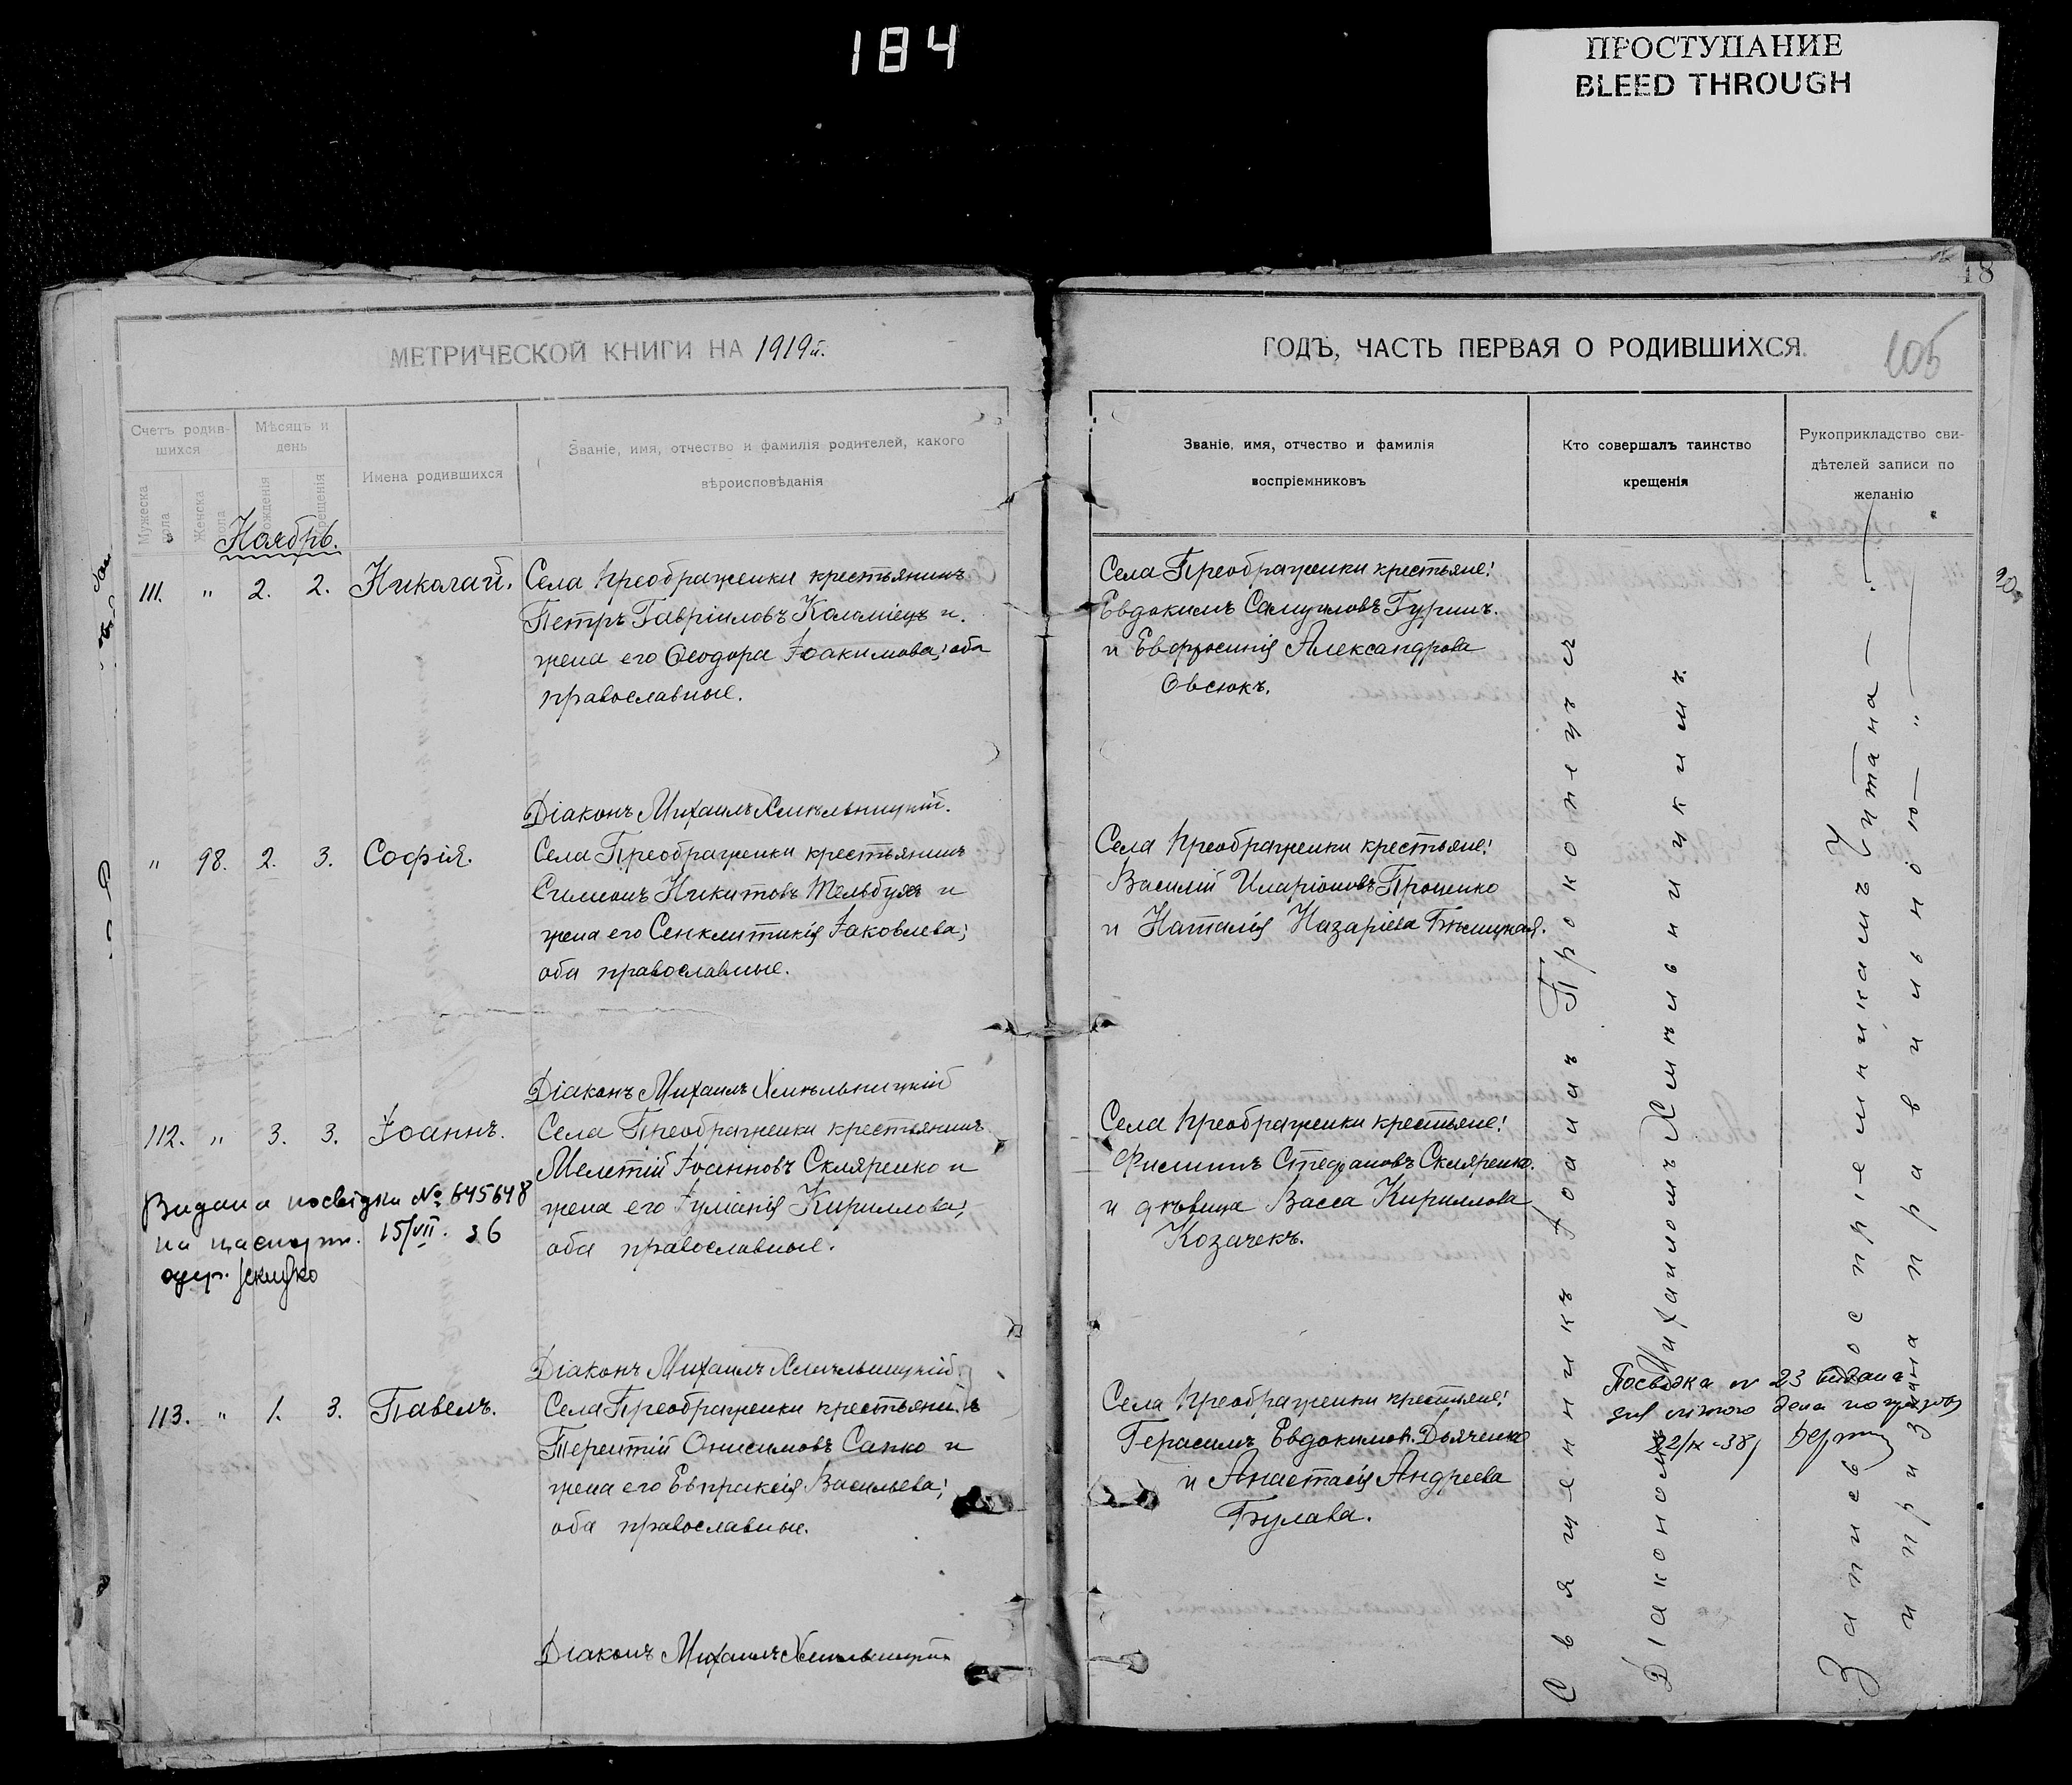 184
ПРОСТУПАНИЕ
BLEED THROUGH
18
МЕТРИЧЕСКОЙ КНИГИ НА 1919й.
Счетъ родив-
шихся
Мѣсяцъ и
день
Мужеска
пола
Женска
пола
рожденія
крещенія
Имена родившихся
Званіе, имя, отчество и фамилія родителей, какого
вѣроисповѣданія
Ноябрь.
111. " 2. 2. Николай.
Села Преображенки крестьянинъ
Петръ Гавріиловъ Коломіецъ и
жена его Ѳеодора Іоакимова; оба
православные.
Діаконъ Михаилъ Хмѣльницкій.
" 98. 2. 3. Софія.
Села Преображенки крестьянинъ
Симеонъ Никитовъ Тельбухъ и
жена его Сенклитикія Іаковлева;
оба православные.
Діаконъ Михаилъ Хмѣльницкій
112. " 3. 3. Іоаннъ.
Села Преображенки крестьянинъ
Мелетій Іоанновъ Скляренко и
жена его Іуліанія Кириллова;
оба православные.
Видана посвідка № 645648
на паспорт. 15/VII. 36
Діаконъ Михаилъ Хмѣльницкій
113. " 1. 3. Павелъ.
Села Преображенки крестьянинъ
Терентій Онисимовъ Сапко и
жена его Евпраксія Васильева;
оба православные.
Діаконъ Михаилъ Хмѣльницкій
ГОДЪ, ЧАСТЬ ПЕРВАЯ О РОДИВШИХСЯ.
105
Званіе, имя, отчество и фамилія
воспріемниковъ
Кто совершалъ таинство
крещенія
Рукоприкладство сви-
дѣтелей записи по
желанію
Села Преображенки крестьяне:
Евдокимъ Самуиловъ Гуринъ.
и Евфросинія Александрова
Овсюкъ.
Села Преображенки крестьяне:
Василій Иларіоновъ Проценко
и Наталія Назаріева Бѣлицкая.
Села Преображенки крестьяне:
Филиппъ Стефановъ Скляренко.
и дѣвица Васса Кириллова
Козачекъ.
Села Преображенки крестьяне:
Герасимъ Евдокимов. Дьяченко
и Анастасія Андреева
Булава.
Священникъ Іоаннъ Прокопецъ съ
Діакономъ Михаиломъ Хмѣльницкимъ.
Запись воспріемникамъ читана
и признана правильною
Посвідка № 23 видана
22/IX-38